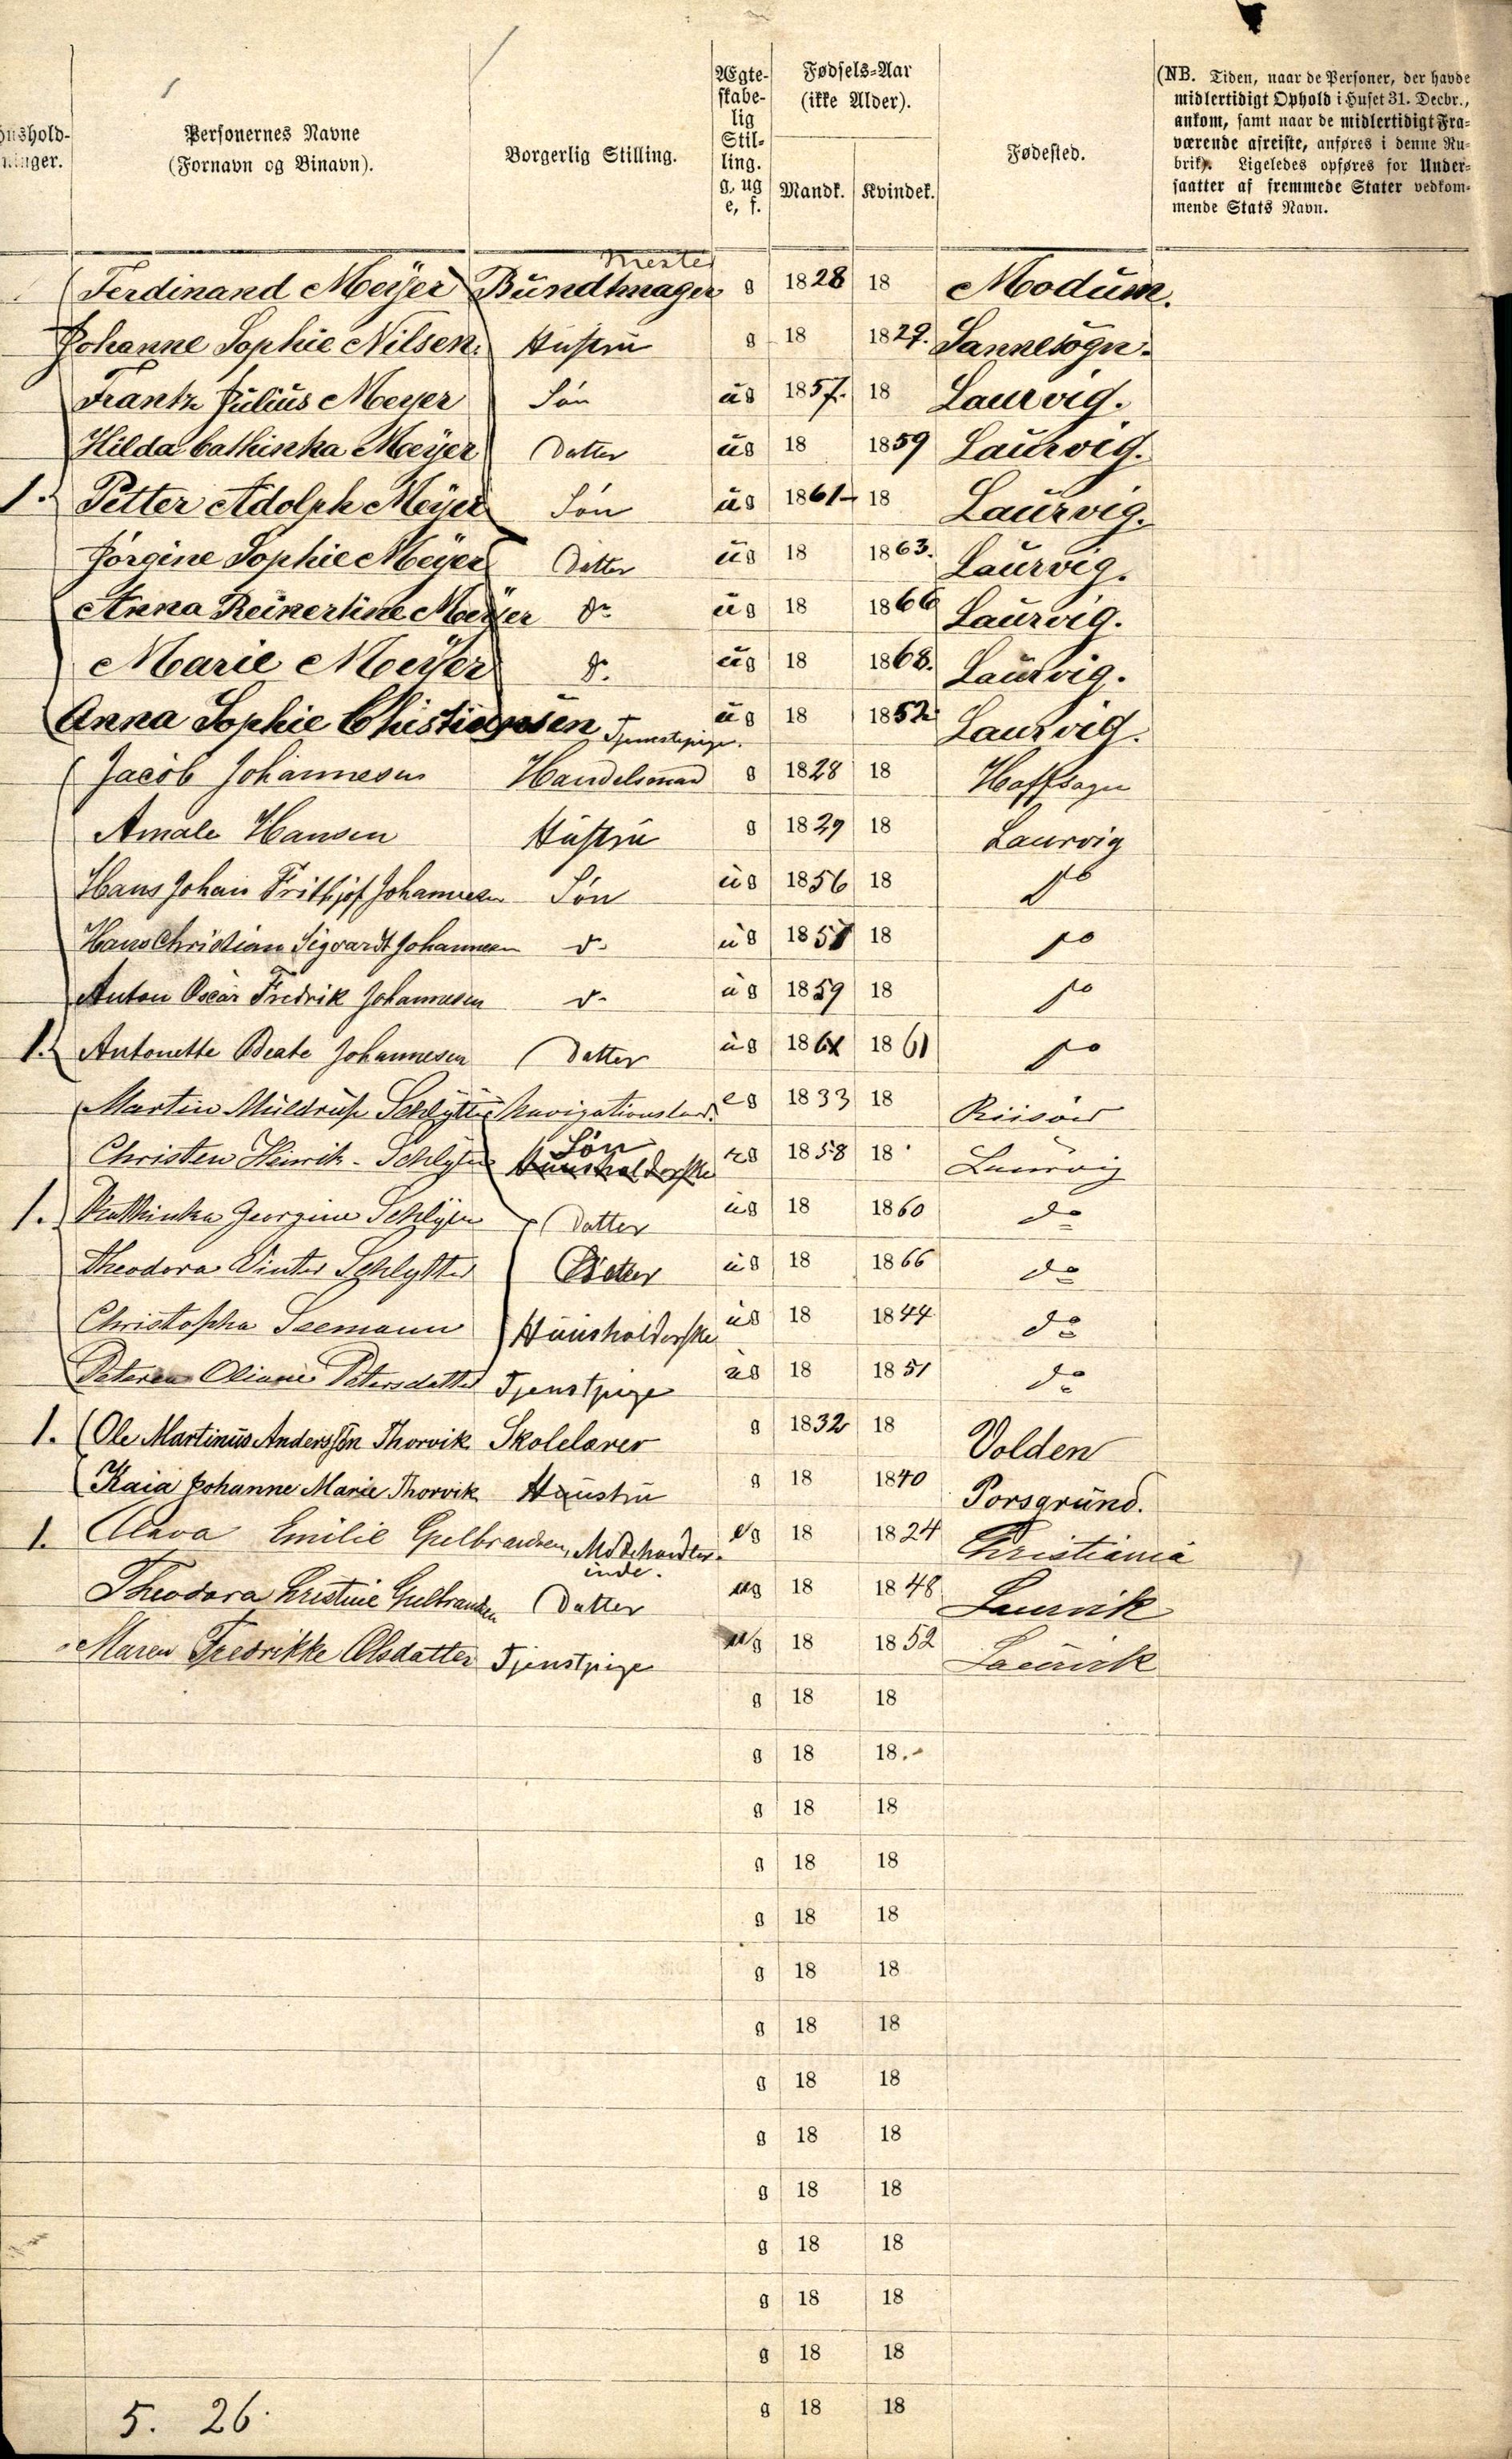 Hushold-
ninger.
Personernes Navne
(Fornavn og Binavn).
Borgerlig Stilling.
Ægte-
skabe-
lig
Stil-
ling.
g, ug
e, f.
Fødsels-Aar
(ikke Alder).
Mandk. Kvindek.
Fødested.
(NB. Tiden, naar de Personer, der havde
midlertidigt Ophold i Huset 31. Decbr.,
ankom, samt naar de midlertidigt Fra-
værende afreiste, anføres i denne Ru-
brik). Ligeledes opføres for Under-
saatter af fremmede Stater vedkom-
mende Stats Navn.
mester
Ferdinand Meÿer Bŭndtmager g 1828 18 Modŭm.
Johanne Sophie Nilsen. Hŭstrŭ g 18 1829. Sannesogn.
Frantz Jŭliŭs Meyer Søn ŭg 1857. 18 Laurvig.
Hilda Cathinka Meÿer Datter ŭg 18 1859 Laŭrvig.
1. Petter Adolph Meÿer Søn ŭg 1861- 18 Laŭrvig.
Jørgine Sophie Meÿer Datter ŭg 18 1863. Laŭrvig.
Anna Reinertine Meÿer do ŭg 18 1866 Laŭrvig.
Marie Meÿer do. ŭg 18 1868. Laŭrvig.
Anna Sophie Christiansen Tjenestepige. ŭg 18 1852 Laurvig.
Jacob Johannesen Handelsmand g 1828 18 Haffsogn
Amale Hansen Hŭstrŭ g 1829 18 Laurvig
Hans Johan Frithjof Johannesen Søn ŭg 1856 18 do
Hans Christian Sigvardt Johannesen do ŭg 1857 18 do
Anton Oscar Fredrik Johannesen do ŭg 1859 18 do
1. Antonette Beate Johannesen Datter ŭg 1861 1861 do
Martin Mŭldrŭp Schlÿtter Navigationslær. eg 1833 18 Riisøer
Søn
Christen Henrik Schlÿter Hŭŭsholderske ug 1858 18 Laŭrvig
1. Kathinka Georgine Schlÿter Datter ŭg 18 1860 do
Theodora Vinter Schlytter Datter ŭg 18 1866 do
Christopha Seemann Hŭŭsholderske ŭg 18 1844 do
Peteren Oliane Petersdatter Tjenstpige ŭg 18 1851 do
1. Ole Martinŭs Anderssøn Thorvik Skolelærer g 1832 18 Volden
Kaia Johanne Marie Thorvik Hŭŭstrŭ g 18 1840 Porsgrŭnd.
1. Clava Emilie Gulbransen, Modehandler- eg 18 1824 Christiania
inde.
Theodora Christine Gulbransen Datter ug 18 1848 Laurvik
Maren Fredrikke Olsdatter Tjenstpige ug 18 1852 Laŭrvik
g 18 18
g 18 18
g 18 18
g 18 18
g 18 18
g 18 18
g 18 18
g 18 18
g 18 18
g 18 18
g 18 18
g 18 18
g 18 18
g 18 18
5. 26.